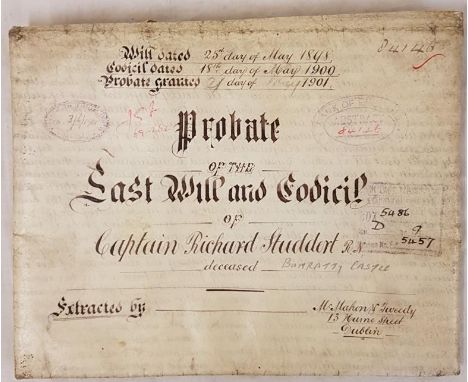 Will dated 25th day of May 1898
84146
Codicil dated 18th day of May 1900
Probate granted day of 1901
Probate
OF THE
Last Will and Codicil
of
5486
D 9
Captain Richard Studdert R.N.
5457
deceased BUNRATTY CASTLE
Extracted by McMahon & Tweedy
13 Hume Street
Dublin